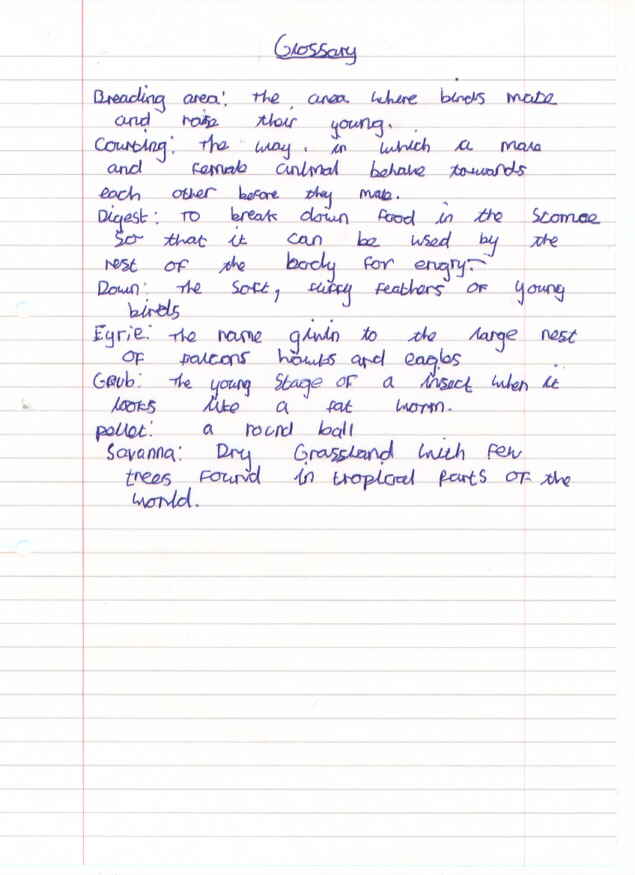 Glossary
Breading area: the area where birds mate
and raise their young.
Courting: the way in which a male
and female animal behave towards
each other before they mate.
Digest: To break down food in the Stomae
so that it can be used by the
rest of the body for engry.
Down: The soft, fluffy feathers of young
birds
Eyrie: the name givin to the large nest
of falcons hawks and eagles
Grub: the young Stage of a insect when it
looks like a fat worm.
pellet: a round ball
Savanna: Dry Grassland with few
trees found in tropical parts of the
world.